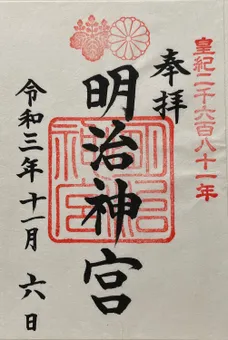 皇紀二千六百八十一年
奉拝
明治神宮
明治神宮
令和三年十一月六日